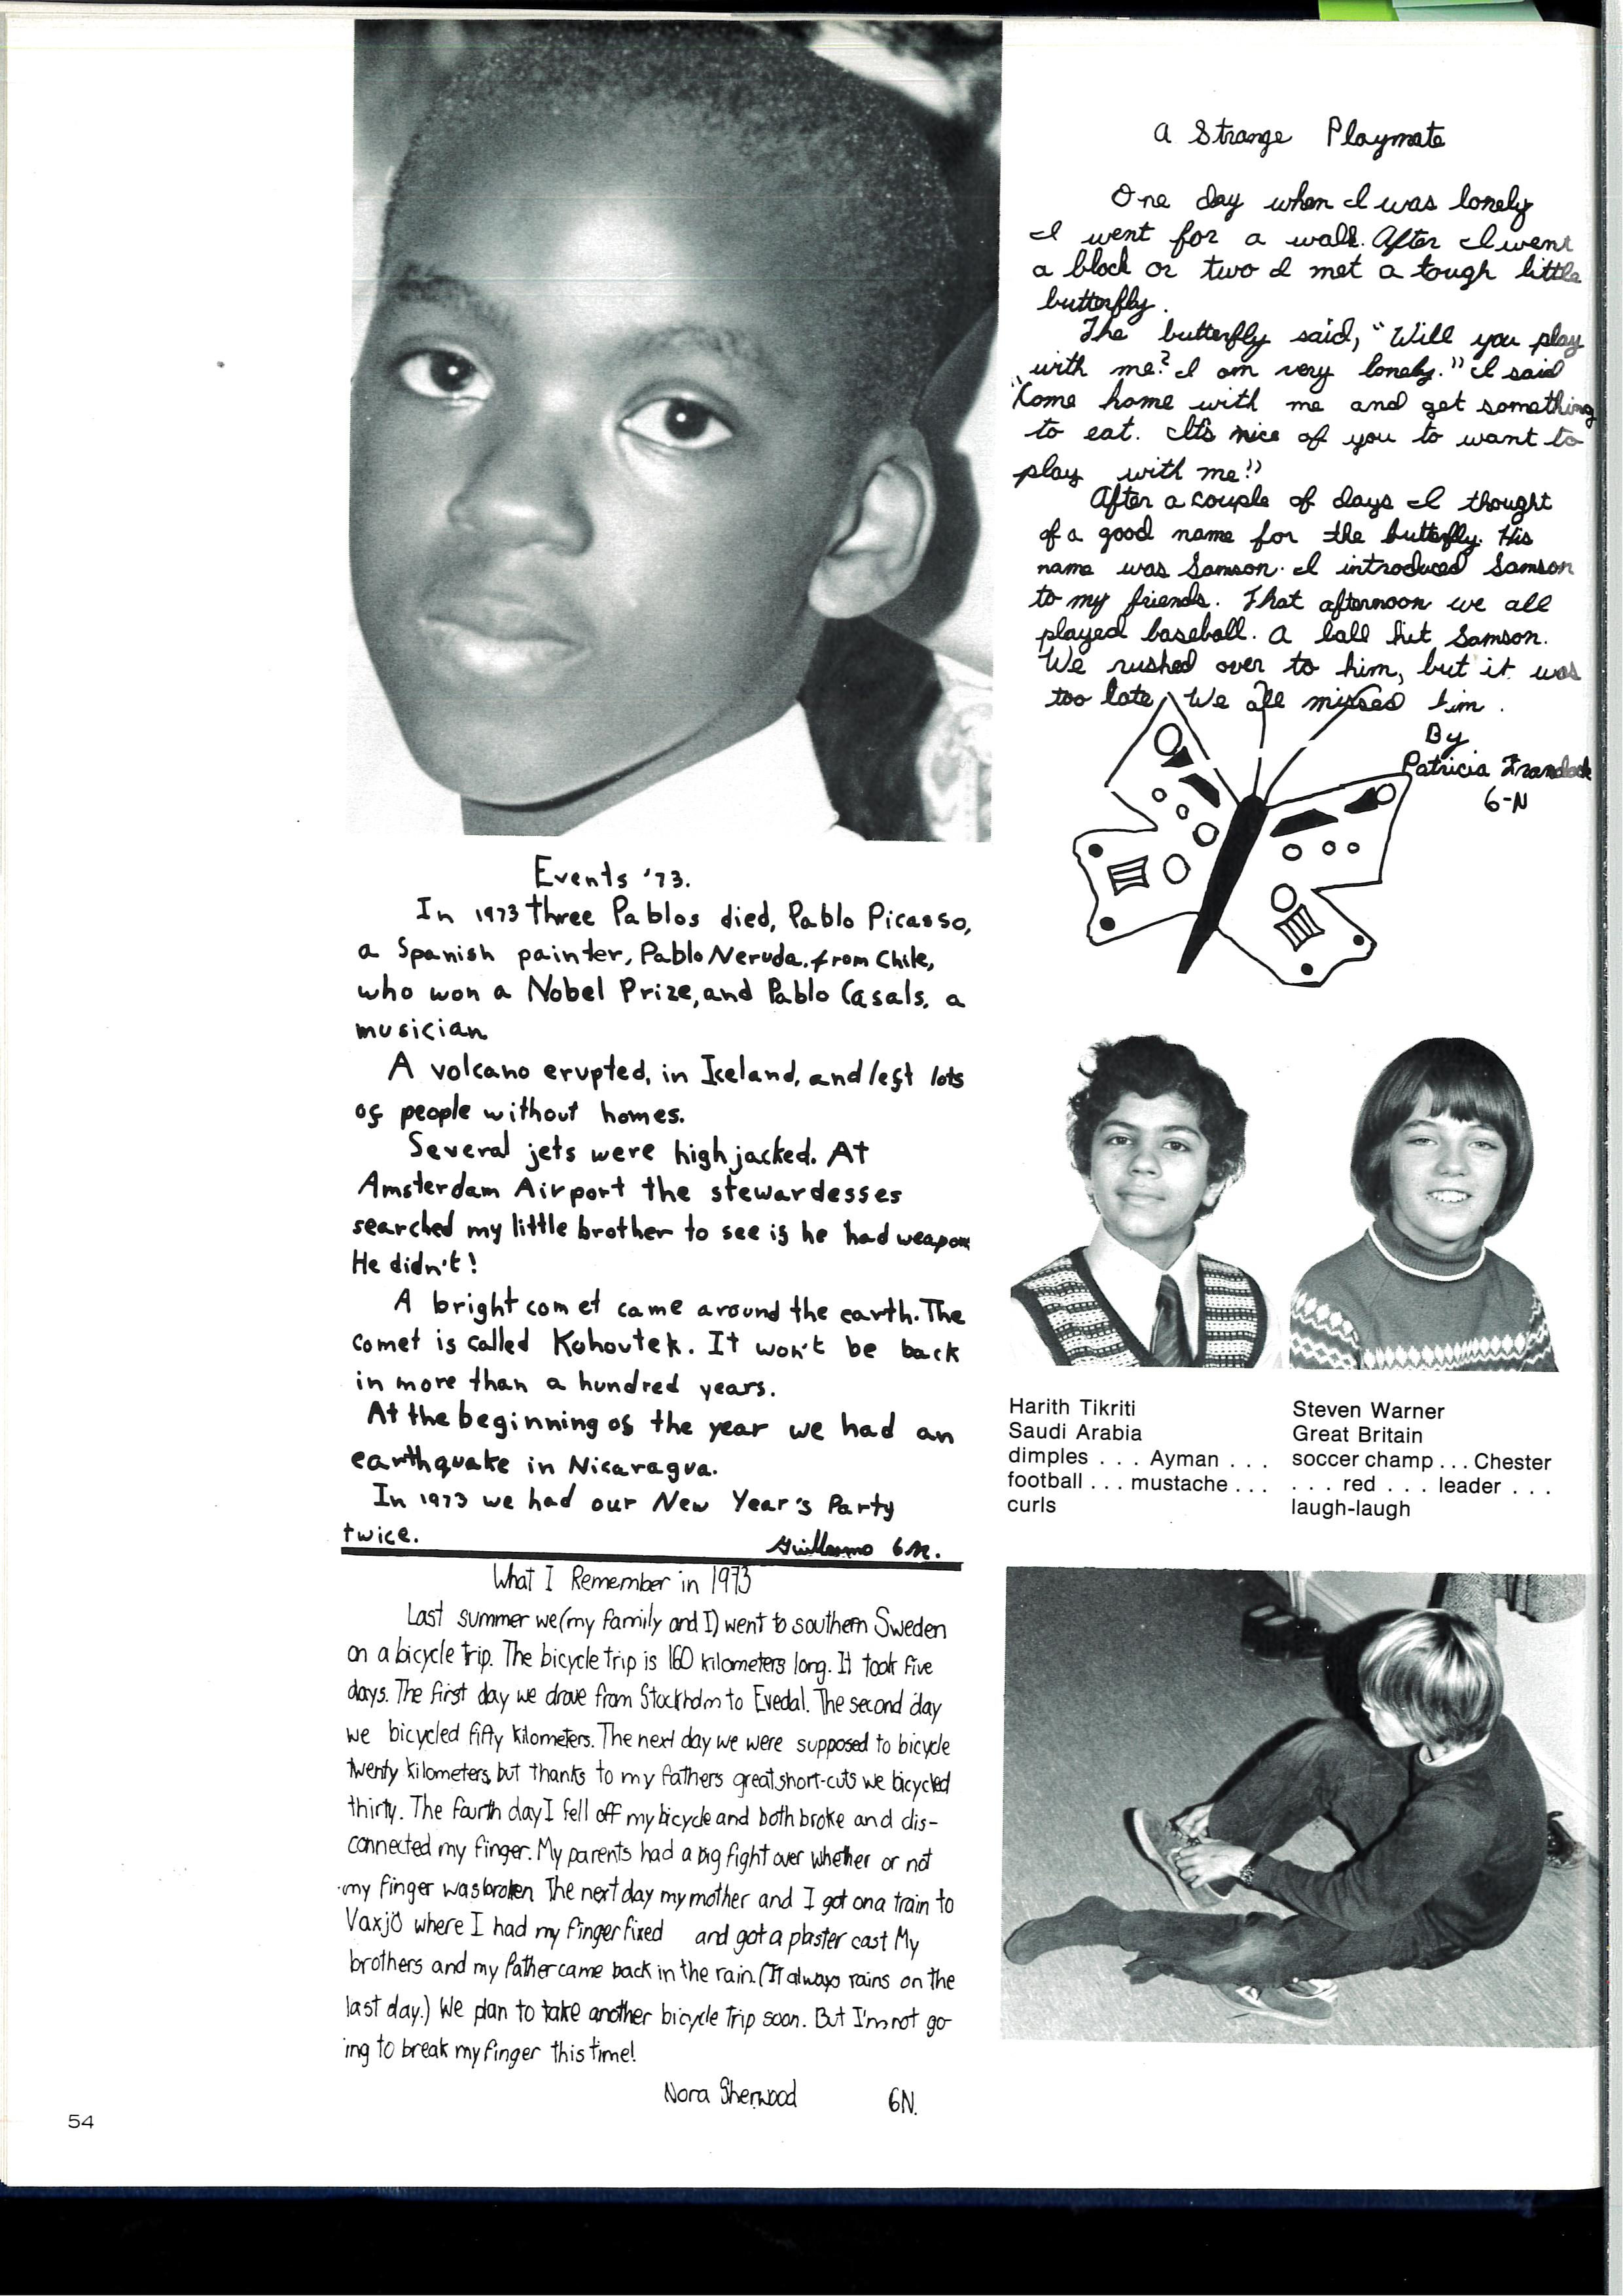 Events '73.
In 1973 three Pablos died, Pablo Picasso,
a Spanish painter, Pablo Neruda, from Chile,
who won a Nobel Prize, and Pablo Casals, a
musician
A volcano erupted, in Iceland, and left lots
of people without homes.
Several jets were highjacked. At
Amsterdam Airport the stewardesses
searched my little brother to see if he had weapon
He didn't!
A bright comet came around the earth. The
comet is called Kohoutek. It won't be back
in more than a hundred years.
At the beginning of the year we had an
earthquake in Nicaragua.
In 1973 we had our New Year's Party
twice.
Guillermo 6M.
What I Remember in 1973
Last summer we (my family and I) went to southern Sweden
on a bicycle trip. The bicycle trip is 160 kilometers long. It took five
days. The first day we drove from Stockholm to Evedal. The second day
we bicycled fifty kilometers. The next day we were supposed to bicycle
twenty kilometers, but thanks to my fathers great short-cuts we bicycled
thirty. The fourth day I fell off my bicycle and both broke and dis-
connected my finger. My parents had a big fight over whether or not
my finger was broken The next day my mother and I got on a train to
Vaxjö where I had my finger fixed and got a plaster cast My
brothers and my father came back in the rain. (It always rains on the
last day.) We plan to take another bicycle trip soon. But I'm not go-
ing to break my finger this time!
Nora Sherwood 6N.
54
A Strange Playmate
One day when I was lonely
I went for a walk. After I went
a block or two I met a tough little
butterfly.
The butterfly said, "Will you play
with me? I am very lonely." I said
"Come home with me and get something
to eat. It's nice of you to want to
play with me!"
After a couple of days I thought
of a good name for the butterfly. His
name was Samson. I introduced Samson
to my friends. That afternoon we all
played baseball. A ball hit Samson.
We rushed over to him, but it was
too late. We all missed him.
By
Patricia
6-N
Harith Tikriti
Saudi Arabia
dimples . . . Ayman . . .
football . . . mustache . . .
curls
Steven Warner
Great Britain
soccer champ . . . Chester
. . . red . . . leader . . .
laugh-laugh